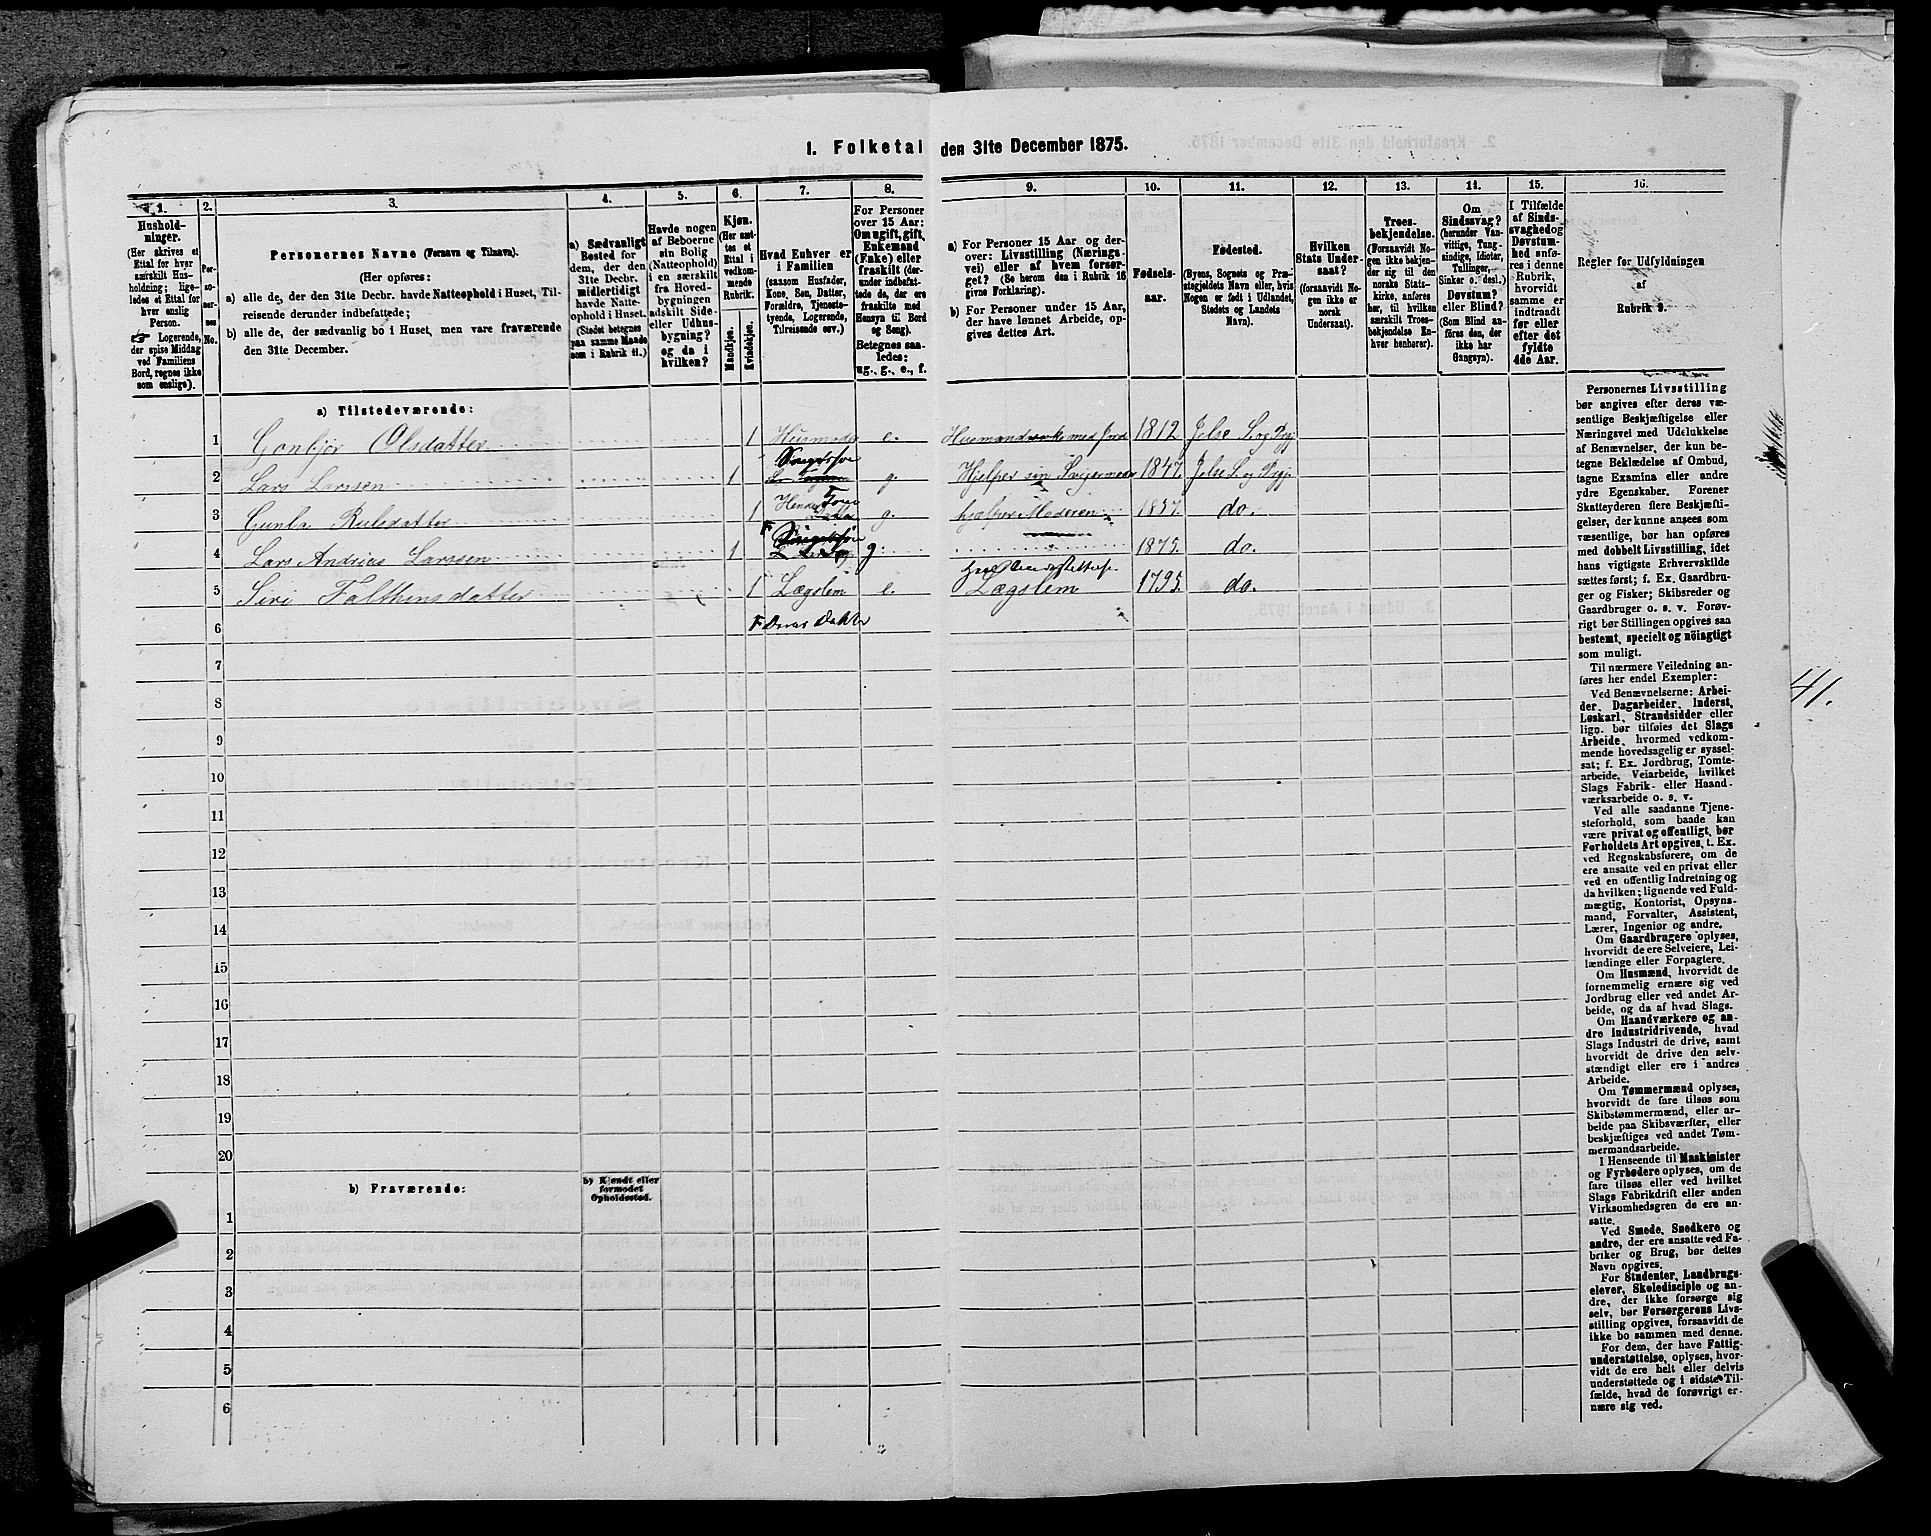 1. Folketal den 31te December 1875.
1.
Hushold-
ninger.
(Her skrives et
Ettal for hver
særskilt Hus-
holdning; lige-
ledes et Ettal for
hver enslig
Person.
☞ Logerende,
der spise Middag
ved Familiens
Bord, regnes ikke
som enslige).
2.
Per-
so-
ner-
nes
No.
3.
Personernes Navne (Fornavn og Tilnavn).
(Her opføres:
a) alle de, der den 31te Decbr. havde Natteophold i Huset, Til-
reisende derunder indbefattede;
b) alle de, der sædvanlig bo i Huset, men vare fraværende
den 31te December.
4.
a) Sædvanligt
Bosted for
dem, der den
31te Decbr.
midlertidigt
havde Natte-
ophold i Huset.
(Stedet betegnes
paa samme Maade
som i Rubrik 11.)
5.
Havde nogen
af Beboerne
sin Bolig
(Natteophold)
i en særskilt
fra Hoved-
bygningen
adskilt Side-
eller Udhus-
bygning?
og da i
hvilken?
6.
Kjøn.
(Her sæt-
tes et
Ettal i
vedkom-
mende
Rubrik.
Mandkjøn.
Kvindekjøn.
7.
Hvad Enhver er
i Familien
(saasom Husfader,
Kone, Søn, Datter,
Forældre, Tjeneste-
tyende, Logerende,
Tilreisende osv.)
8.
For Personer
over 15 Aar:
Om ugift, gift,
Enkemand
(Enke) eller
fraskilt (der-
under indbefat-
tede de, der ere
fraskilte med
Hensyn til Bord
og Seng).
Betegnes saa-
ledes:
ug., g., e., f.
9.
a) For Personer 15 Aar og der-
over: Livsstilling (Nærings-
vei) eller af hvem forsør-
get? (Se herom den i Rubrik 16
givne Forklaring).
b) For Personer under 15 Aar,
der have lønnet Arbeide, op-
gives dettes Art.
10.
Fødsels-
aar.
11.
Fødested.
(Byens, Sognets og Præ-
stegjeldets Navn eller, hvis
Nogen er født i Udlandet,
Stedets og Landets
Navn).
12.
Hvilken
Stats Under-
saat?
(forsaavidt No-
gen ikke er
norsk
Undersaat).
13.
Troes-
bekjendelse.
(Forsaavidt No-
gen ikke bekjen-
der sig til den
norske Stats-
kirke, anføres
her, til hvilken
særskilt Troes-
bekjendelse En-
hver henhører).
14.
Om
Sindssvag?
(herunder Van-
vittige, Tung-
sindige, Idioter,
Tullinger,
Sinker o. desl.).
Døvstum?
eller Blind?
(Som Blind an-
føres den, der
ikke har
Gangsyn).
15.
I Tilfælde
af Sinds-
svaghed og
Døvstum-
hed anfø-
res i denne
Rubrik,
hvorvidt
samme er
indtraadt
før eller
efter det
fyldte
4de Aar.
16.
Regler for Udfyldningen
af
Rubrik 9.
a) Tilstedeværende:
1 Gonbjør Olsdatter 1 Husmoder e. Husmandsenke med Jord 1812. Jelse S. og Pgj.
Svigersøn
2 Lars Larssen 1 g. Hjelper sin Svigermoder 1847. Jelse S. og Pgj.
3 Gunla Rulsdatter 1 g. hjælper Moderen 1837. do.
4 Lars Andrias Larssen 1 g. 1875. do.
5 Siri Falthinsdatter 1 Lægslem e. Lægslem 1795. do.
6 F. Deres Datter
7
8
9
10
11
12
13
14
15
16
17
18
19
20
b) Fraværende:
b) Kjendt eller
formodet
Opholdssted.
1
2
3
4
5
6
Personernes Livsstilling
bør angives efter deres væ-
sentlige Beskjæftigelse eller
Næringsvei med Udelukkelse
af Benævnelser, der kun be-
tegne Beklædelse af Ombud,
tagne Examina eller andre
ydre Egenskaber. Forener
Skatteyderen flere Beskjæfti-
gelser, der kunne ansees som
væsentlige, bør han opføres
med dobbelt Livsstilling, idet
hans vigtigste Erhvervskilde
sættes først; f. Ex. Gaardbru-
ger og Fisker; Skibsreder og
Gaardbruger o. s. v. Forøv-
rigt bør Stillingen opgives saa
bestemt, specielt og nöiagtigt
som muligt.
Til nærmere Veiledning an-
føres her endel Exempler:
Ved Benævnelserne: Arbei-
der, Dagarbeider, Inderst,
Løskarl, Strandsidder eller
lign. bør tilføies det Slags
Arbeide, hvormed vedkom-
mende hovedsagelig er syssel-
sat; f. Ex. Jordbrug, Tomte-
arbeide, Veiarbeide, hvilket
Slags Fabrik- eller Haand-
værksarbeide o. s. v.
Ved alle saadanne Tjene-
steforhold, som baade kan
være privat og offentligt, bør
Forholdets Art opgives, t. Ex.
ved Regnskabsførere, om de
ere ansatte ved en privat eller
ved en offentlig Indretning og
da hvilken; lignende ved Fuld-
mægtig, Kontorist, Opsyns-
mand, Forvalter, Assistent,
Lærer, Ingeniør og andre.
Om Gaardbrugere oplyses,
hvorvidt de ere Selveiere, Lei-
lændinge eller Forpagtere.
Om Husmænd, hvorvidt de
fornemmelig ernære sig ved
Jordbrug eller ved andet Ar-
beide, og da af hvad Slags.
Om Haandværkere og an-
dre Industridrivende, hvad
Slags Industri de drive, samt
hvorvidt de drive den selv-
stændigt eller ere i andres
Arbeide.
Om Tømmermænd oplyses,
hvorvidt de fare tilsøs som
Skibstømmermænd, eller ar-
beide paa Skibsværfter, eller
beskjæftiges ved andet Tøm-
mermandsarbeide.
I Henseende til Maskinister
og Fyrbødere oplyses, om de
fare tilsøs eller ved hvilket
Slags Fabrikdrift eller anden
Virksomhedsgren de ere an-
satte.
Ved Smede, Snedkere og
andre, der ere ansatte ved Fa-
briker og Brug, bør dettes
Navn opgives.
For Studenter, Landbrugs-
elever, Skoledisciple og an-
dre, der ikke forsørge sig
selv, bør Forsørgerens Livs-
stilling opgives, forsaavidt de
ikke bo sammen med denne.
For dem, der have Fattig-
understøttelse, oplyses, hvor-
vidt de ere helt eller delvis
understøttede og i sidste Til-
fælde, hvad de forøvrigt er-
nære sig ved.
41.